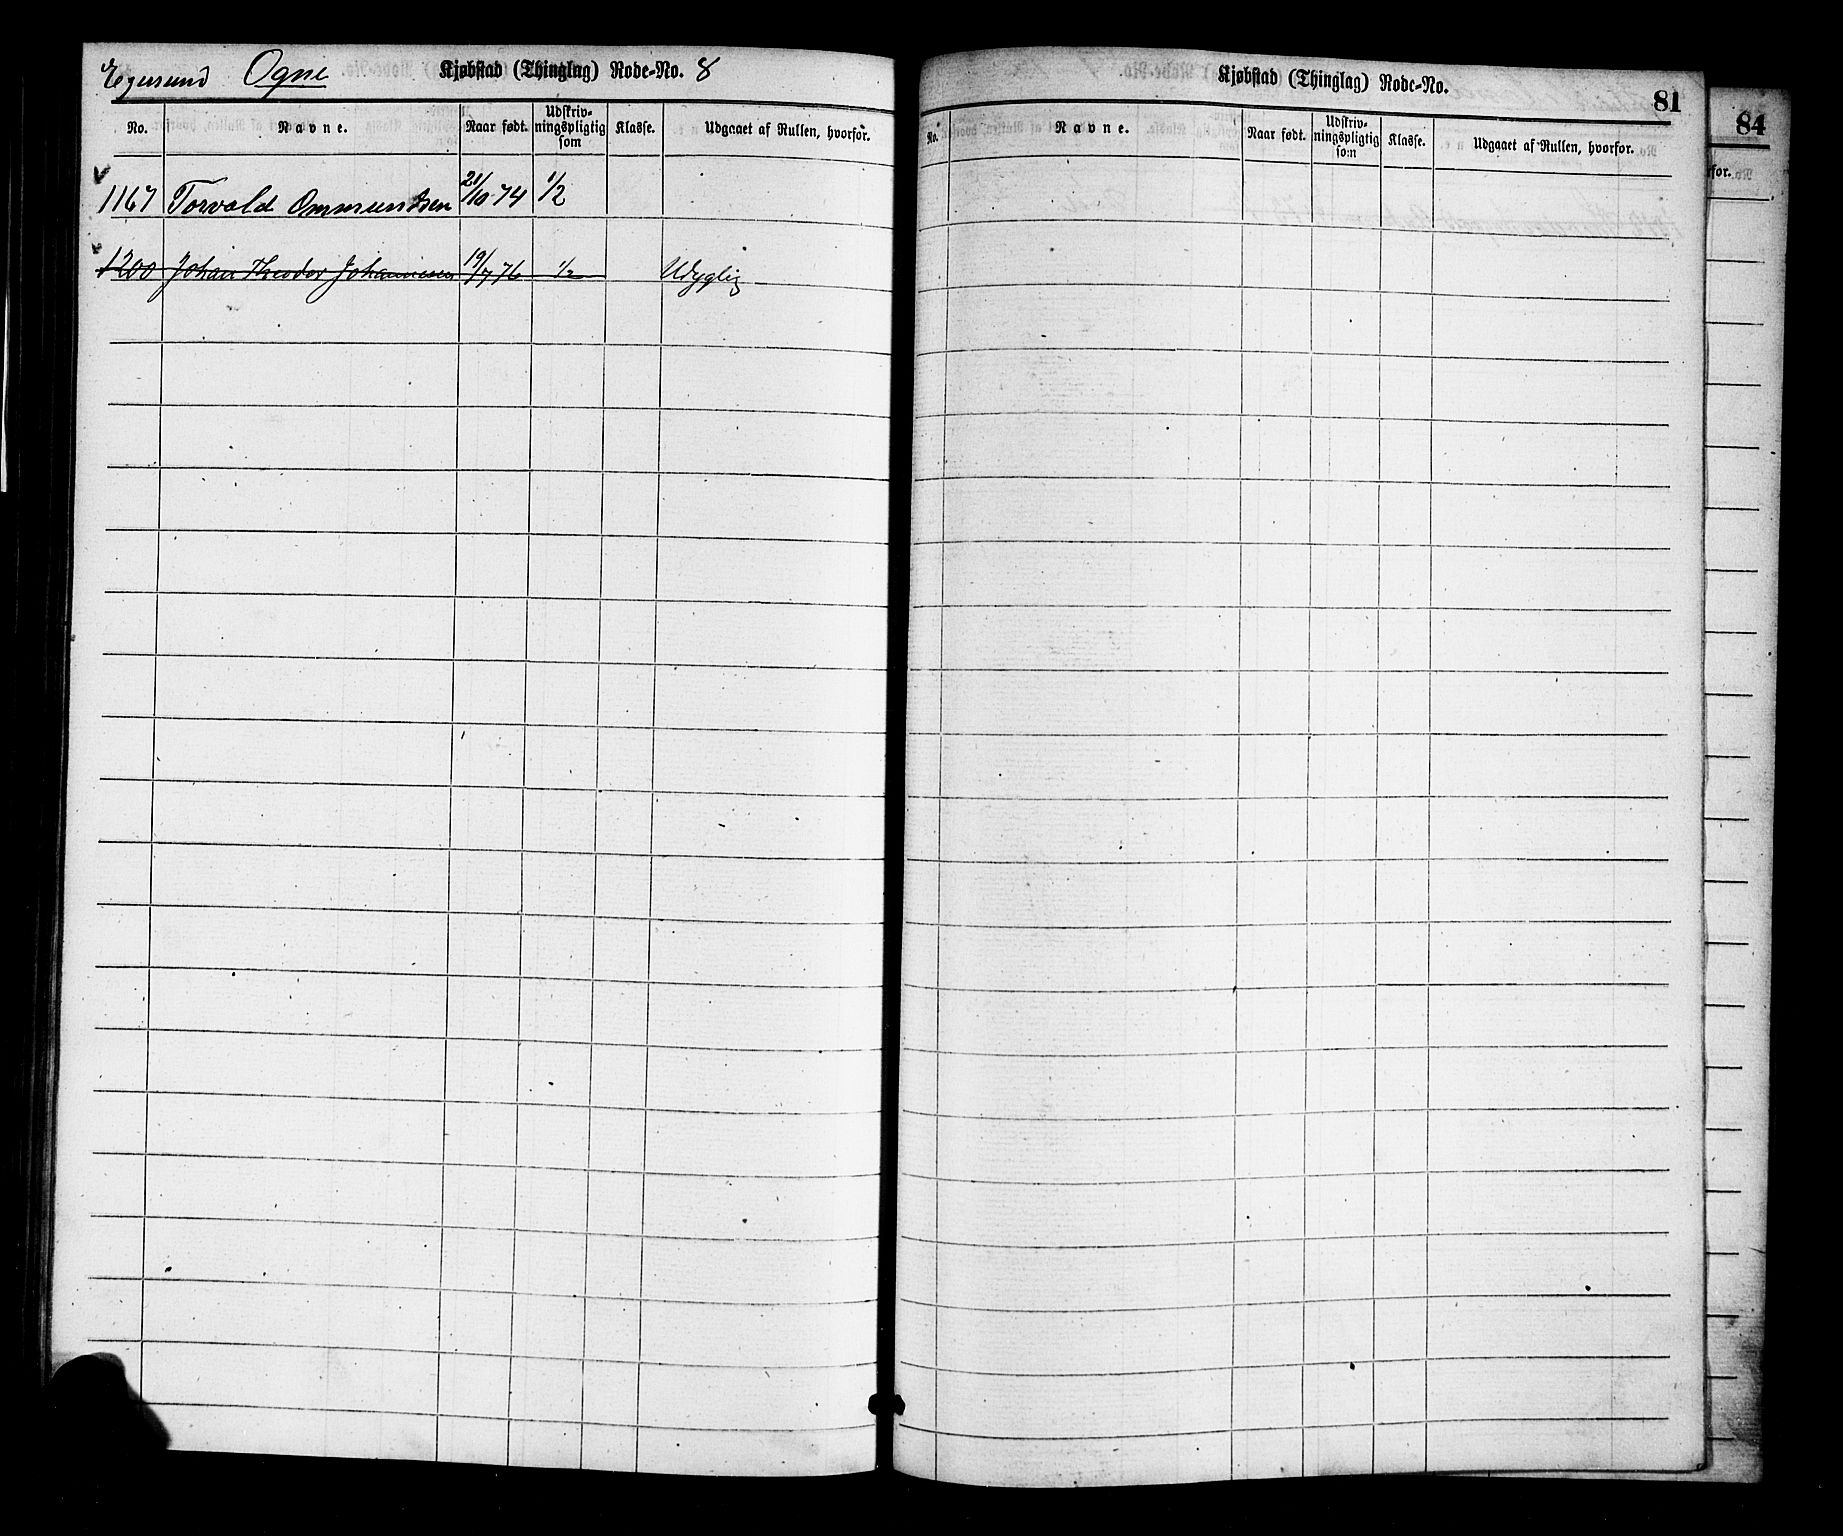 Egersund Ogne Kjøbstad (Thinglag) Rode-No. 8
No. Navne. Naar født. Udskriv-ningspligtig som Klasse. Udgaaet af Rullen, hvorfor.
1167 Torvald Ommundsen 21/10-74 1/2
1200 Johan Theodor Johannesen 19/7 76 1/2 Udyglig
Kjøbstad (Thinglag) Rode-No.
81
No. Navne. Naar født. Udskriv-ningspligtig som Klasse. Udgaaet af Rullen, hvorfor.
84
rfor.